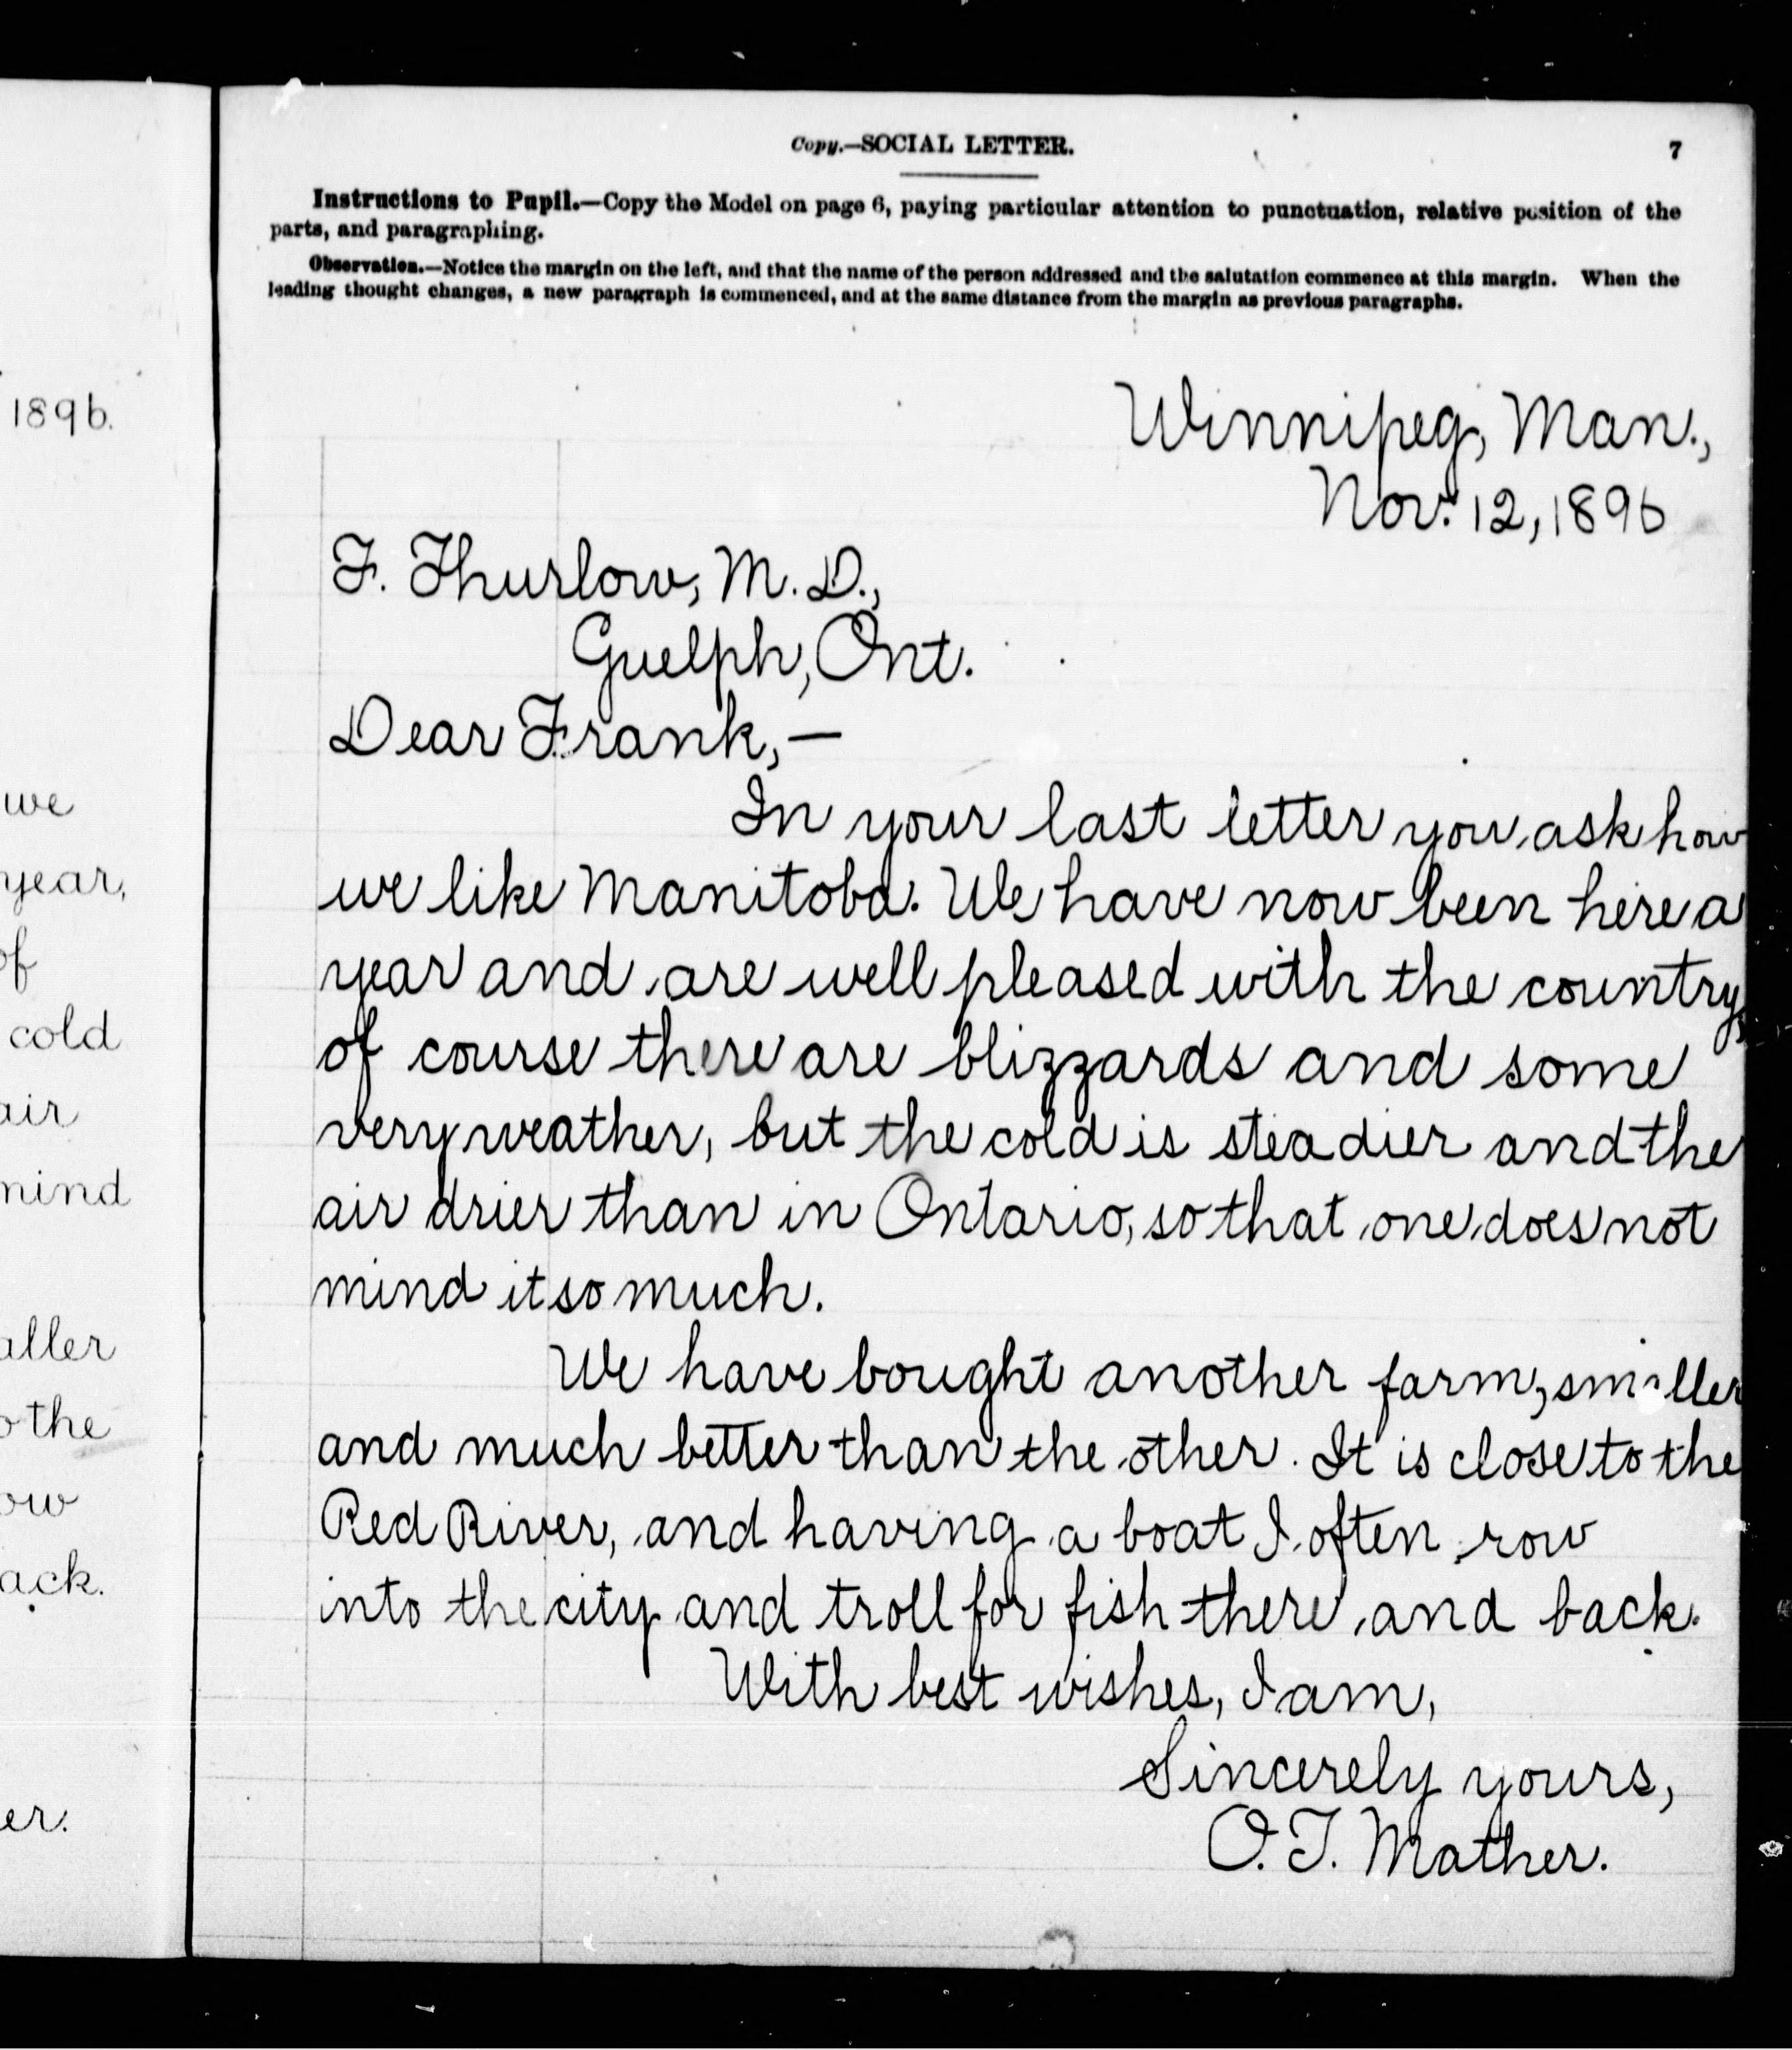 1896.
we
year,
of
cold
air
mind
aller
o the
ow
ack.
er.
Copy.—SOCIAL LETTER. 7
Instructions to Pupil.—Copy the Model on page 6, paying particular attention to punctuation, relative position of the
parts, and paragraphing.
Observation.—Notice the margin on the left, and that the name of the person addressed and the salutation commence at this margin. When the
leading thought changes, a new paragraph is commenced, and at the same distance from the margin as previous paragraphs.
Winnipeg, Man.,
Nov. 12, 1896
F. Thurlow, M. D.,
Guelph, Ont.
Dear Frank,—
In your last letter you ask how
we like Manitoba. We have now been here a
year and are well pleased with the country,
of course there are blizzards and some
very weather, but the cold is steadier and the
air drier than in Ontario, so that one does not
mind it so much.
We have bought another farm, smaller
and much better than the other. It is close to the
Red River, and having a boat I often row
into the city and troll for fish there and back.
With best wishes, I am,
Sincerely yours,
O. T. Mather.